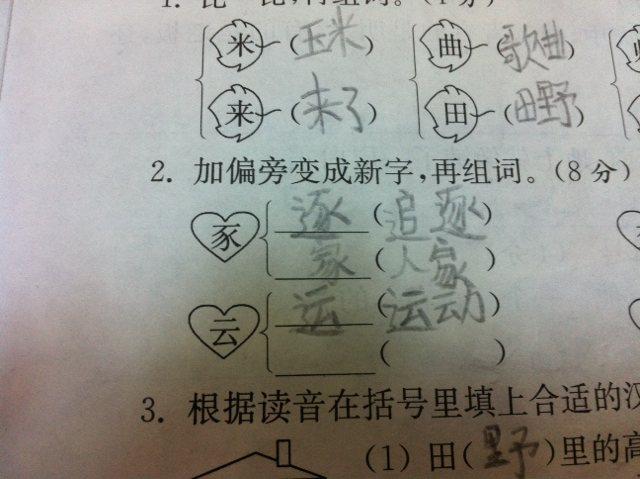 1. 比一比,再组词。(4分)
米 (玉米) 曲 (歌曲)
来 (来了) 田 (田野)
2. 加偏旁变成新字,再组词。(8分)
豕 逐 (追逐)
家 (人家)
云 运 (运动)
( )
3. 根据读音在括号里填上合适的汉
(1) 田(野)里的高